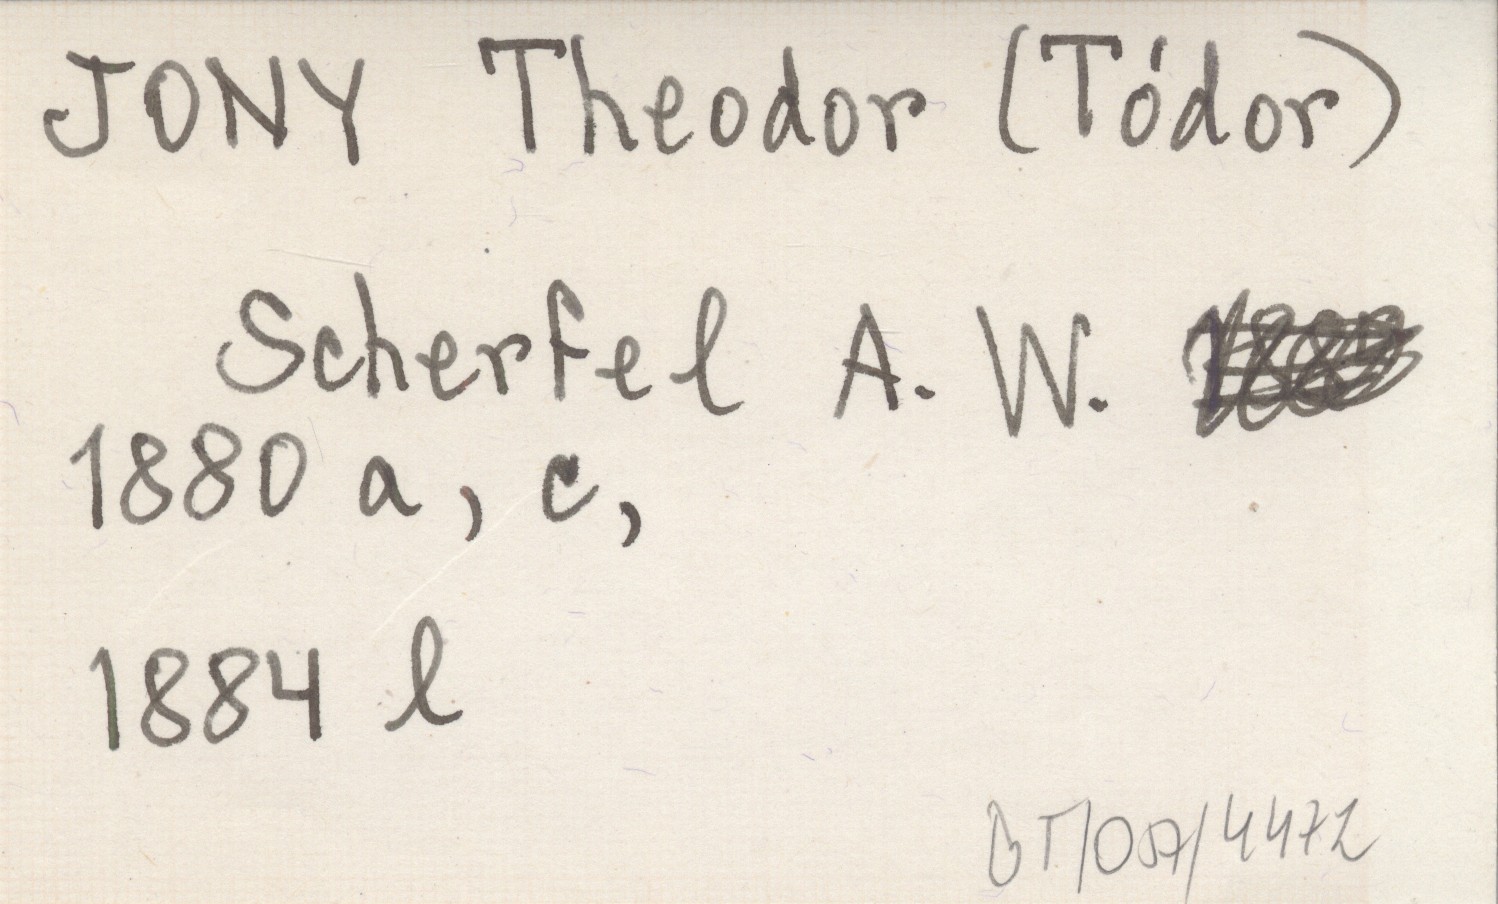 JONY Theodor (Tódor)
Scherfel A. W.
1880 a, c,
1884 l
BT/07/4472